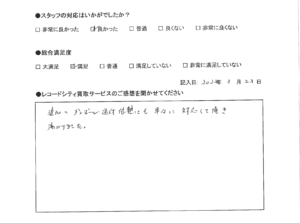 ●スタッフの対応はいかがでしたか？
□ 非常に良かった ☑ 良かった □ 普通 □ 良くない □ 非常に良くない
●総合満足度
□ 大満足 ☑ 満足 □ 普通 □ 満足していない □ 非常に満足していない
記入日
●レコードシティ買取サービスのご感想を聞かせてください
追加の ダンボール送付依頼にも 対応して頂き
助かりました。